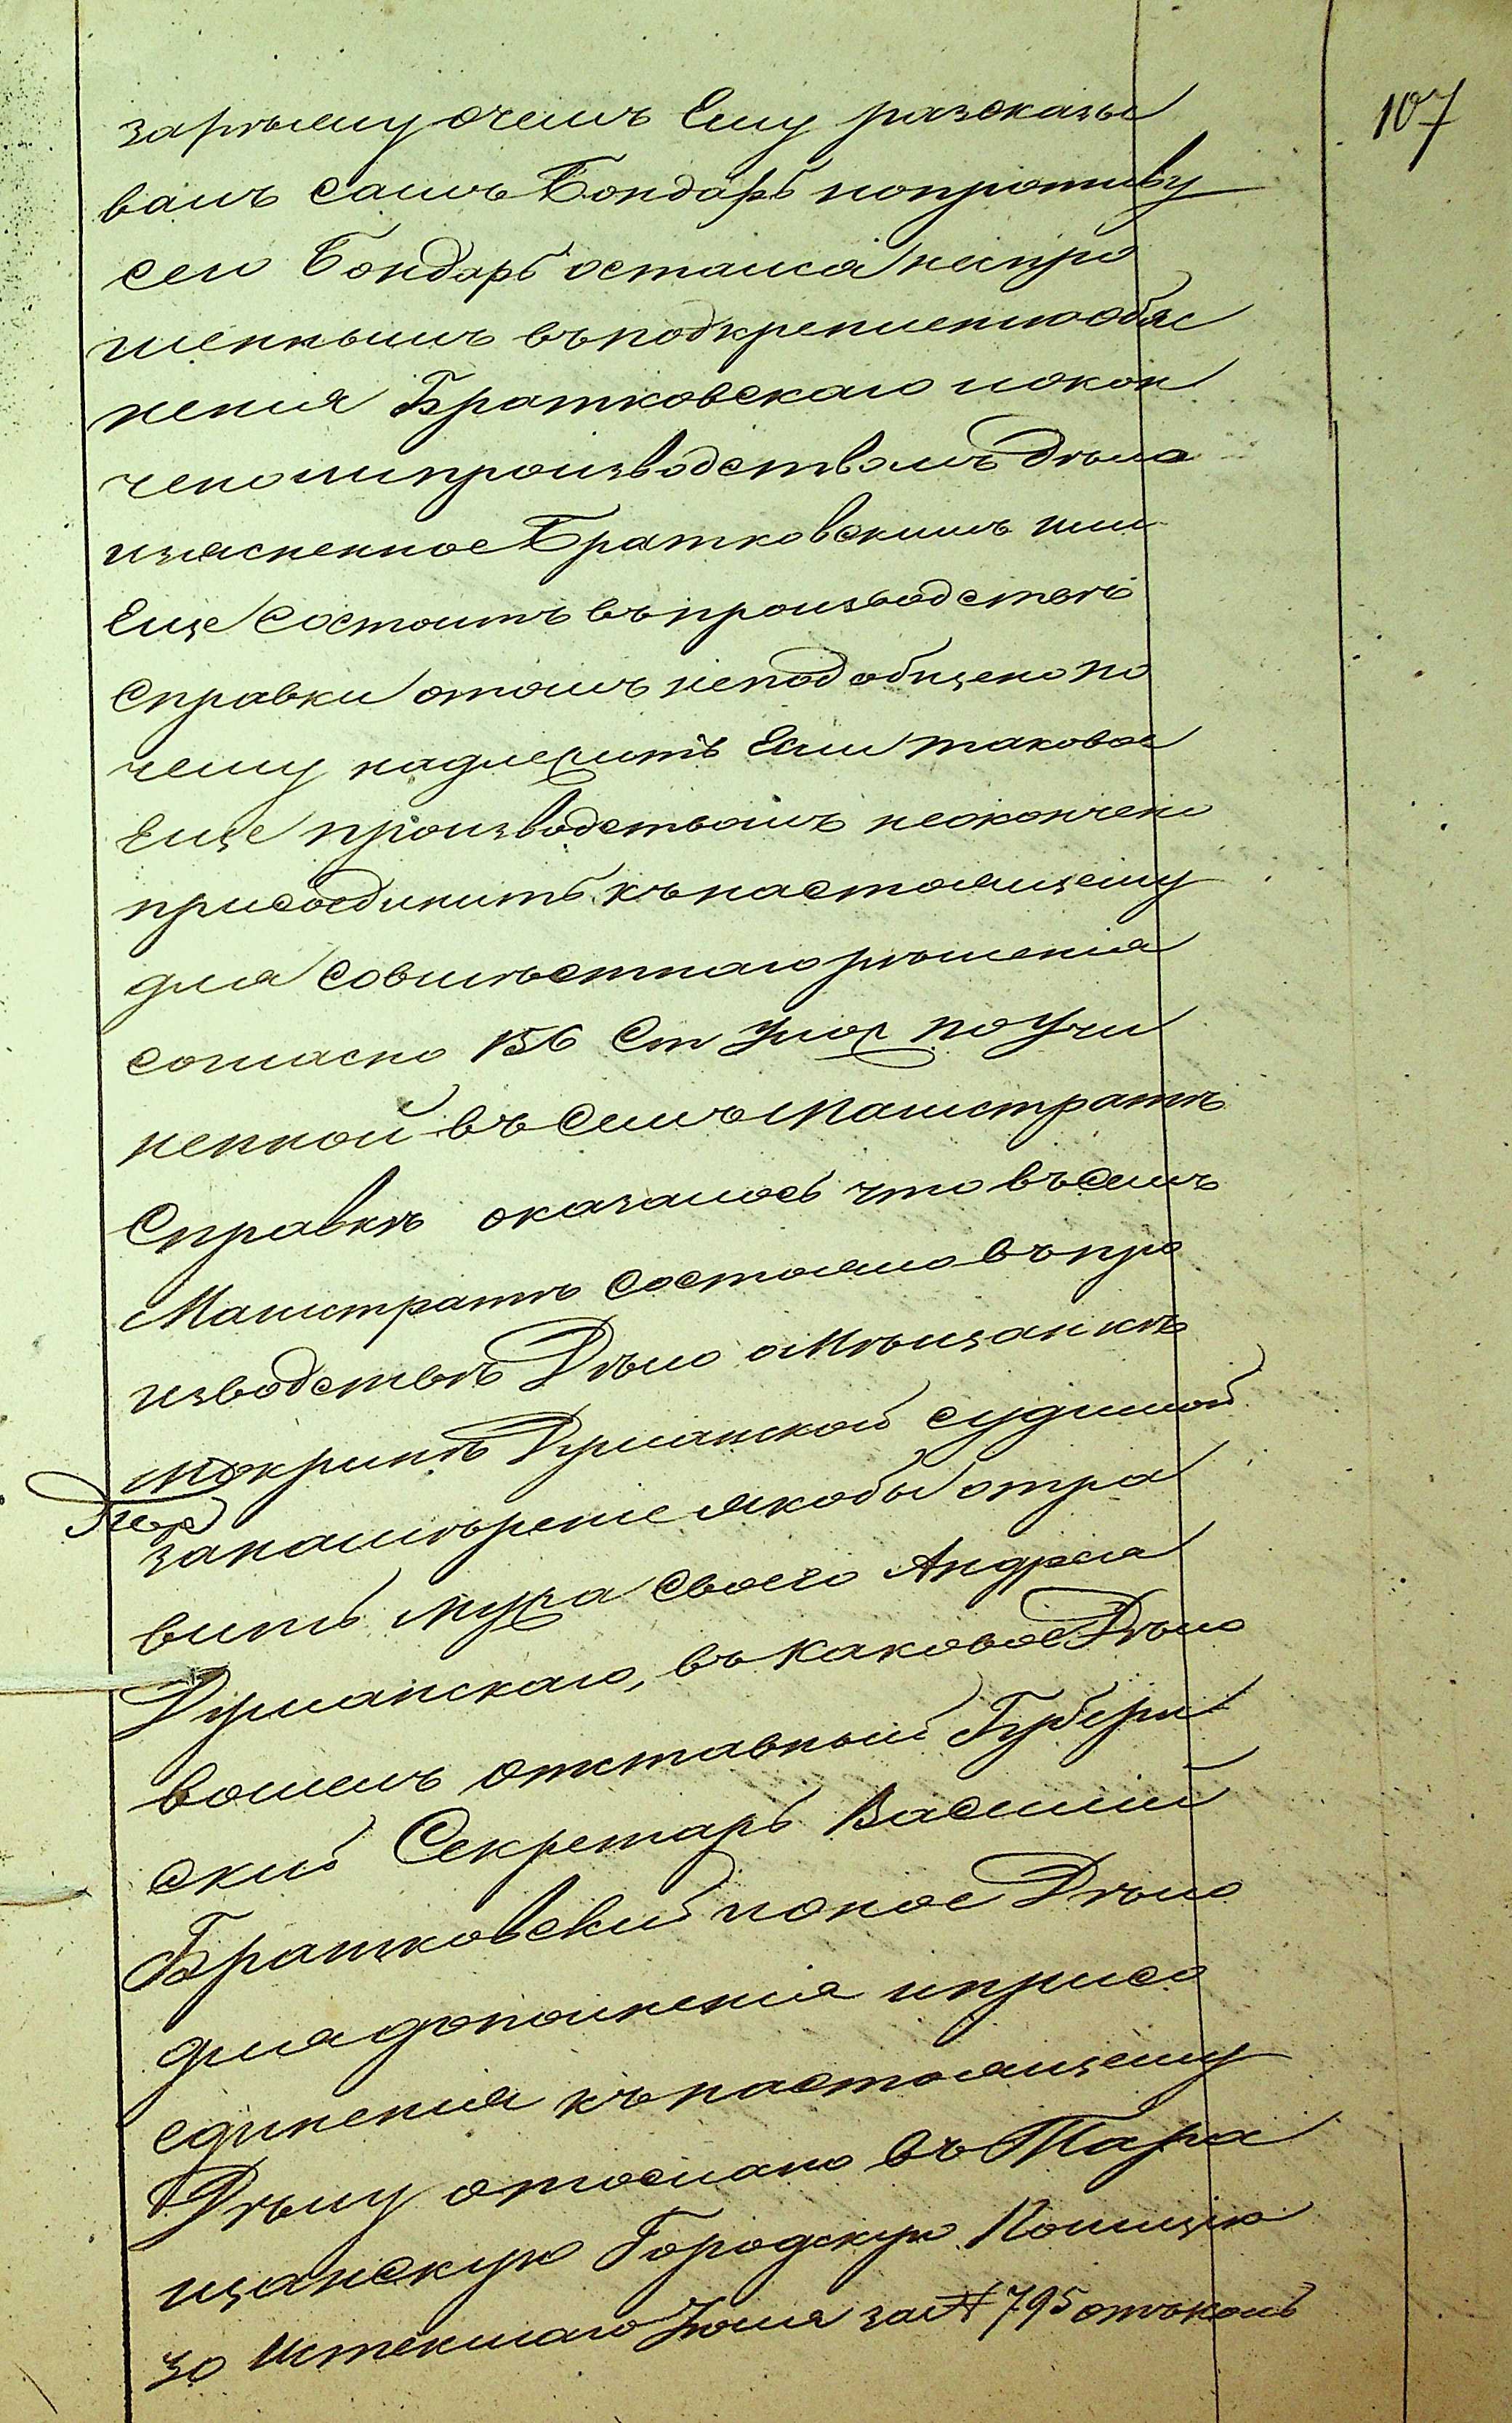 107
зарѣжему очемъ Ему разсказы
валъ самъ Бондарь попротиву
сего Бондарь остался неспро
шеннымъ въ подкрепленію обяс
ненія Братковскаго и окон
чено ли производствомъ Дѣло
изясненное Братковскимъ или
Еще состоитъ въ производствѣ
справки отомъ неподобщено по
чему надлежитъ Если таковое
Еще производствомъ неокончено
присоединить къ настоящему
для совмѣстнаго рѣшенія
согласно 156 Ст Улож по Учи
ненной въ семъ Магистратѣ
Справкѣ оказалось что въ семъ
Магистратѣ состояло въ про
изводствѣ Дѣло о Мѣщанкѣ
Мокринѣ Дулланской судимой
за намѣреніе якобы отра
вить мужа своего Андрея
Дулланскаго, въ каковое Дѣло
вошелъ отставный Губерн
скій Секретарь Василій
Братковскій и оное Дѣло
для дополненія и присо
единенія къ настоящему
Дѣлу отослано въ Тара
щанскую Городскую Полицію
30 Истекшаго Іюля за № 795 отъколь